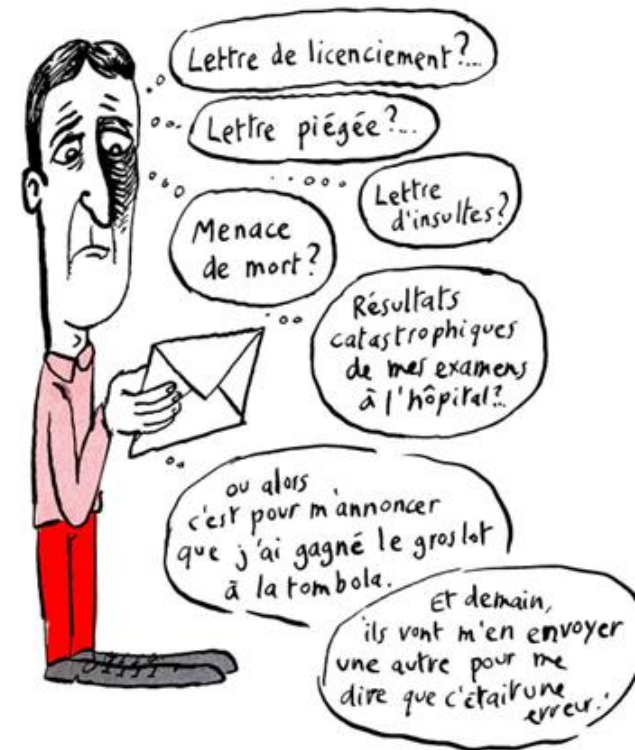 Lettre de licenciement?...
Lettre piégée?...
Lettre
d'insultes?
Menace
de mort?
Résultats
catastrophiques
de mes examens
à l'hôpital?.
ou alors
c'est pour m'annoncer
que j'ai gagné le gros lot
à la tombola.
Et demain,
ils vont m'en envoyer
une autre pour me
dire que c'était une
erreur.